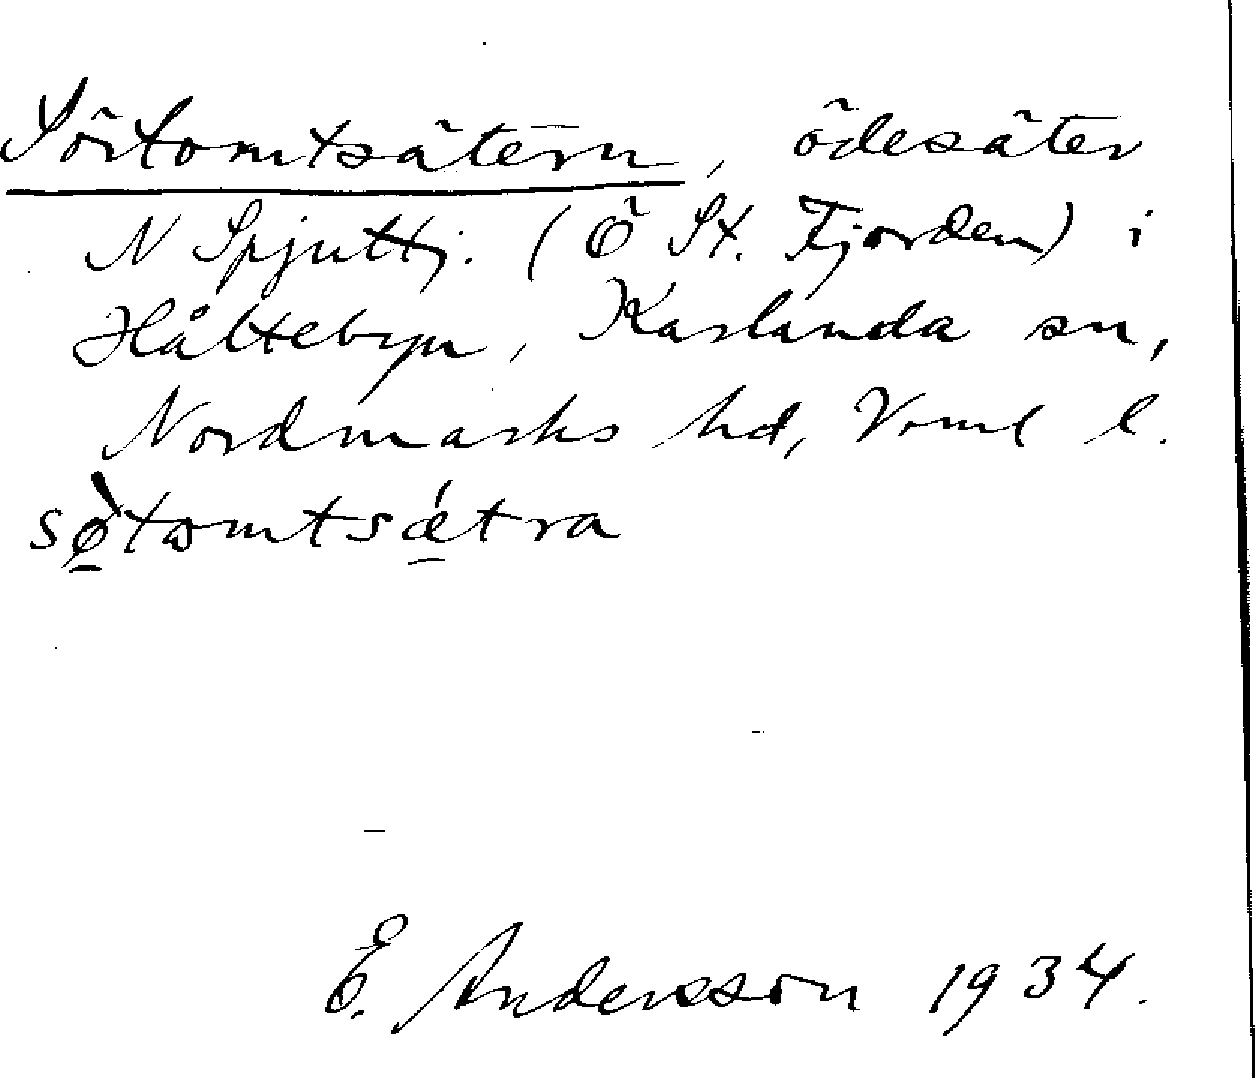 Sörtomtsätern, ödesäter
N Spjuttj. (Ö St. Tjorden) i
Håltebyn, Karlanda sn,
Nordmarks hd, Vrml l.
sø̱̀tomtsǽ̱tra
E. Andersson 1934.